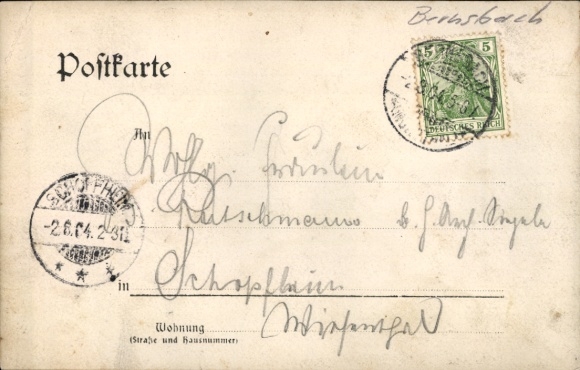 Bernsbach
Postkarte
5 5
DEUTSCHES REICH
An
Wohlg. Fräulein
SCHOPFHEIM
-2.6.04.2-3N.
Rutschmann b. H.
in Schopfheim
Wiesenthal
Wohnung
(Straße und Hausnummer)